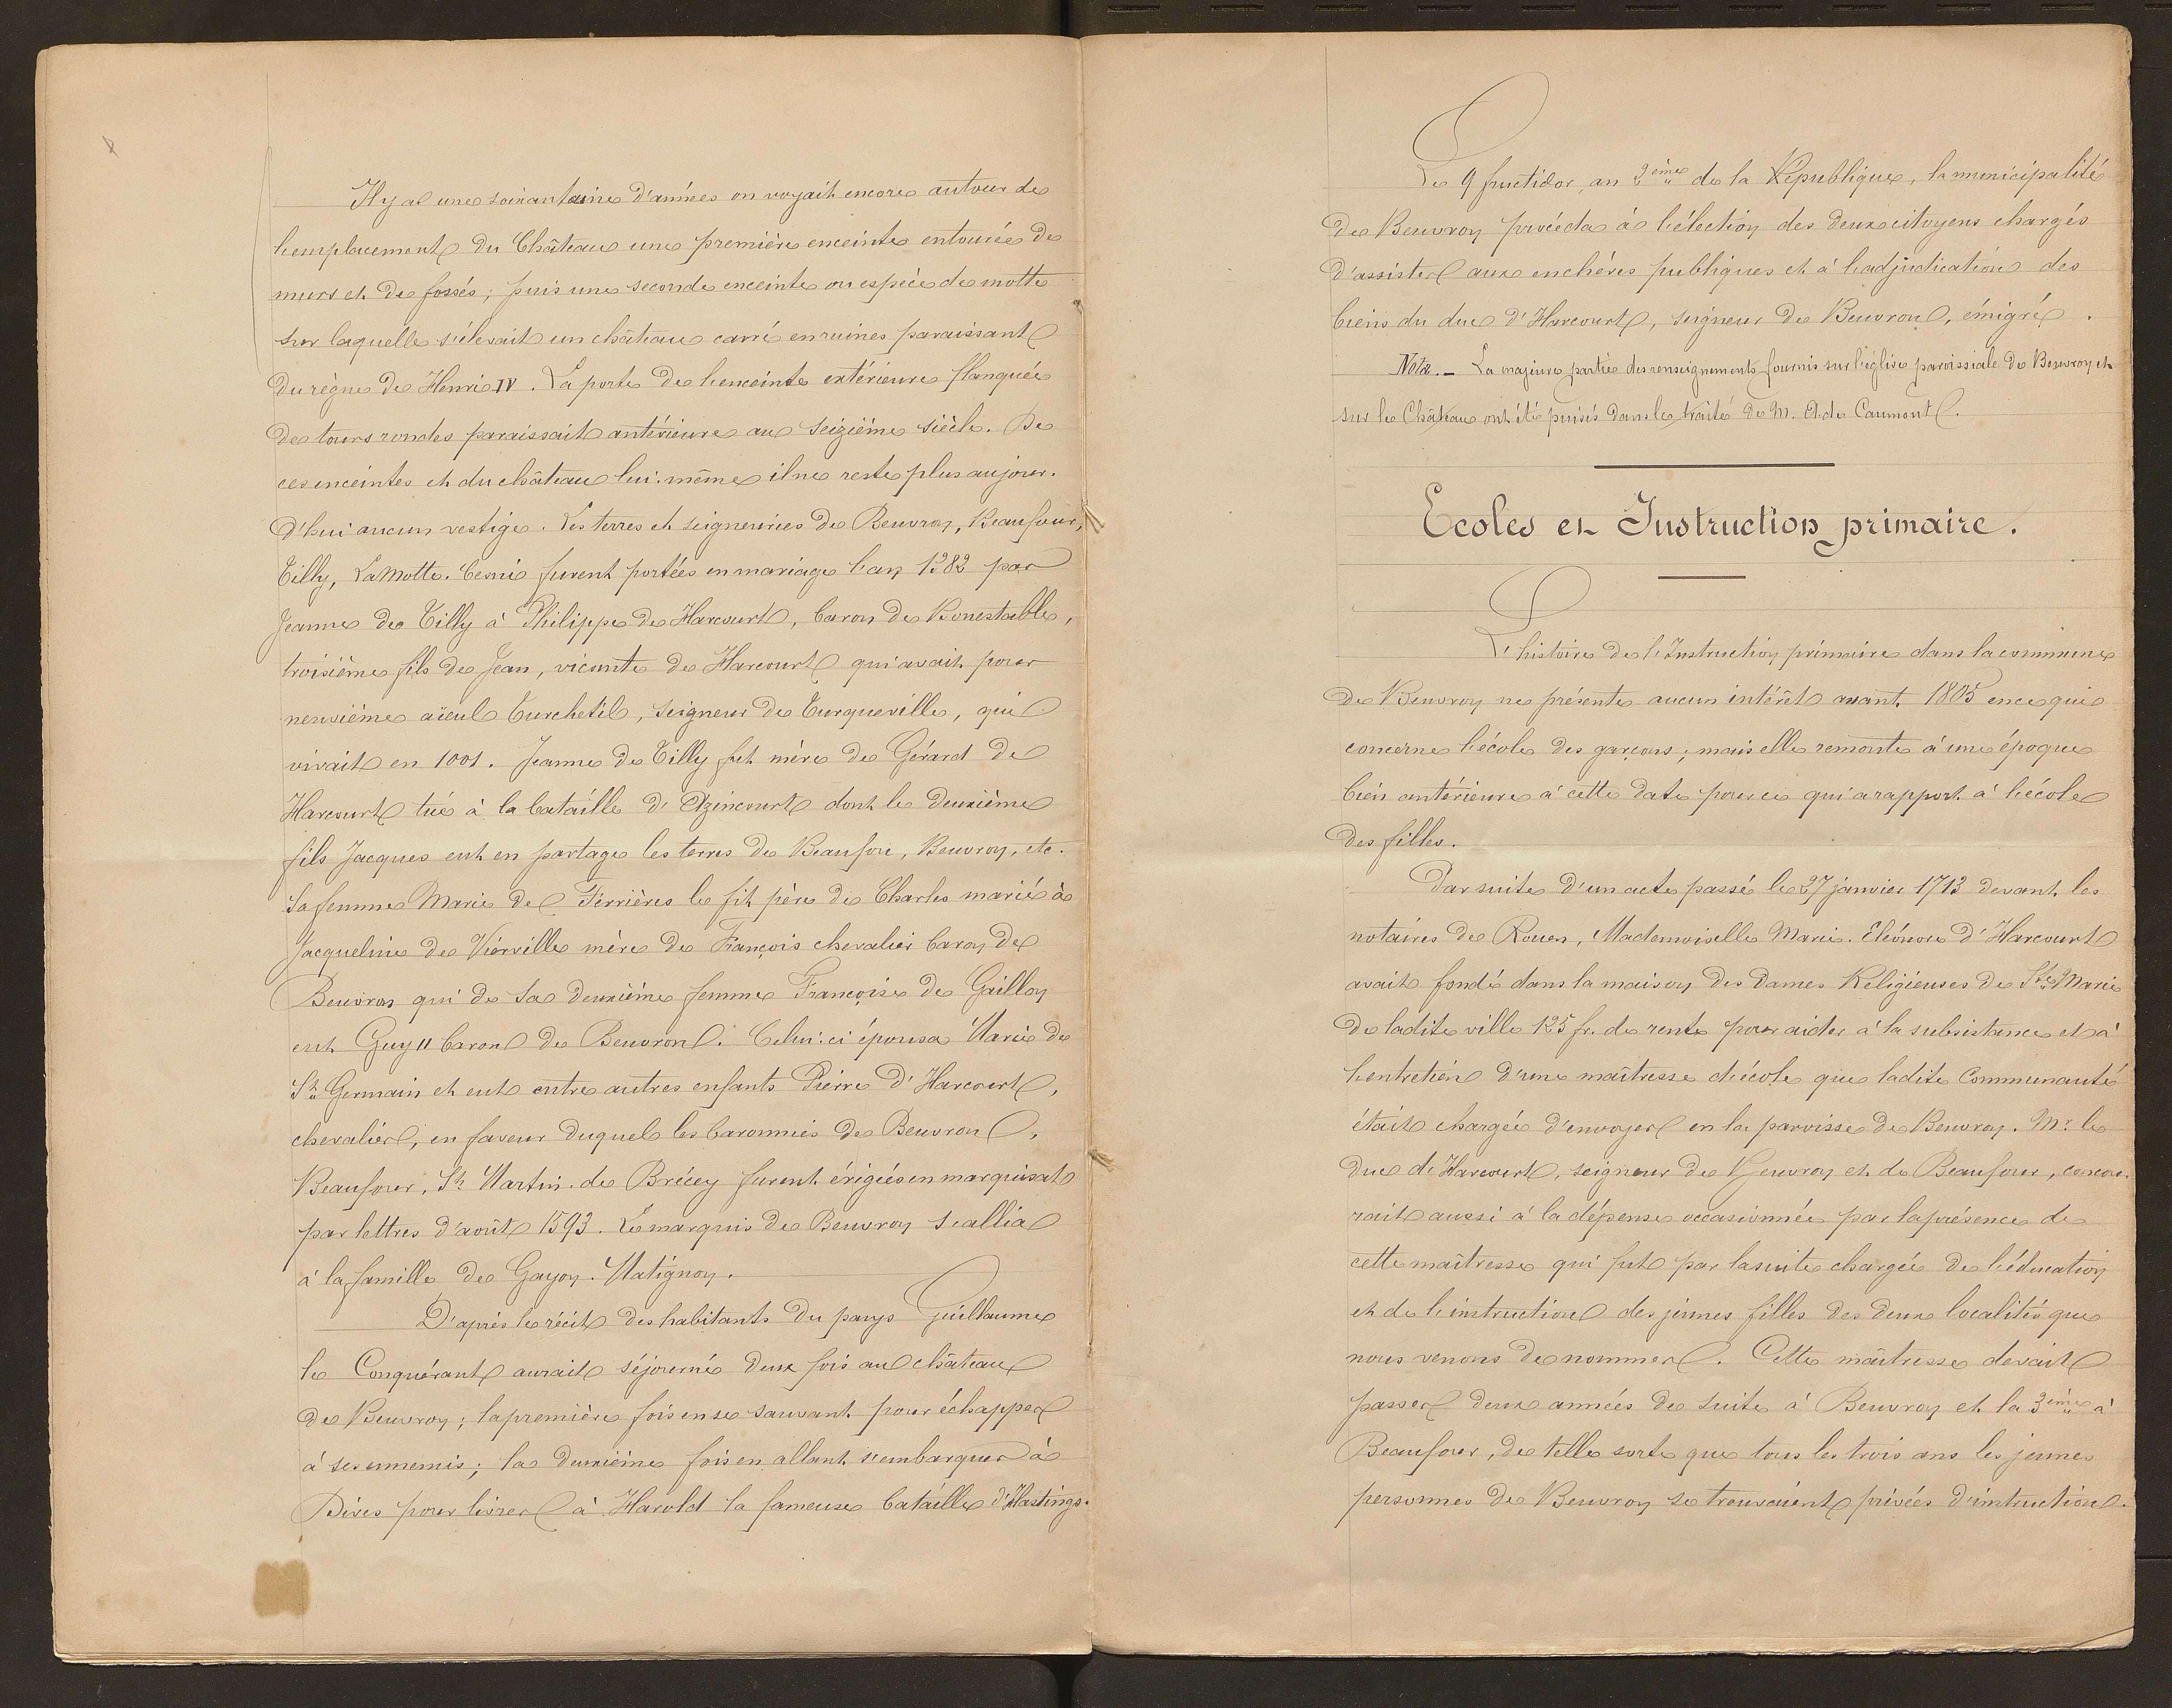 Il y a une soixantaine d'années on voyait encore autour de
l'emplacement du Château une première enceinte entourée de
murs et de fossés ; puis une seconde enceinte ou espèce de motte
sur laquelle s'élevait un château carré en ruines paraissant
du règne de Henri IV. La porte de l'enceinte extérieure flanquée
de tours rondes paraissait antérieure au seizième siècle. De
ces enceintes et du château lui-même il ne reste plus aujour-
d'hui aucun vestige. Les terres et seigneuries de Beuvron, Beaufour,
Tilly, La Motte-Cesni furent portées en mariage l'an 1382 par
Jeanne de Tilly à Philippe de Harcourt, baron de Bonestable,
troisième fils de Jean, vicomte de Harcourt qui avait pour
neuvième aïeul Turchetil, seigneur de Turqueville, qui
vivait en 1001. Jeanne de Tilly fut mère de Gérard de
Harcourt tué à la bataille d'Azincourt dont le deuxième
fils Jacques eut en partage les terres de Beaufou, Beuvron, etc.
Sa femme Marie de Ferrières le fit père de Charles marié à
Jacqueline de Vierville mère de François chevalier baron de
Beuvron qui de sa deuxième femme Françoise de Gaillon
eut Guy II baron de Beuvron. Celui-ci épousa Marie de
St Germain et eut entre autres enfants Pierre d'Harcourt,
chevalier, en faveur duquel les baronnies de Beuvron,
Beaufour, St Martin-de Brécey furent érigées en marquisat
par lettres d'août 1593. Le marquis de Beuvron s'allia
à la famille de Goyon-Matignon.
D'après le récit des habitants du pays Guillaume
le Conquérant aurait séjourné deux fois au château
de Beuvron ; la première fois en se sauvant pour échapper
à ses ennemis ; la deuxième fois en allant s'embarquer à
Dives pour livrer à Harold la fameuse bataille d'Hastings.
Le 9 fructidor, an 2ème de la République, la municipalité
de Beuvron procéda à l'élection des deux citoyens chargés
d'assister aux enchères publiques et à l'adjudication des
biens du duc d'Harcourt, seigneur de Beuvron, émigré.
Nota. - La majeure partie des renseignements fournis sur l'église paroissiale de Beuvron et
sur le Château ont été puisés dans le traité de M. A. de Caumont.
Ecoles et Instruction primaire.
L'histoire de l'Instruction primaire dans la commune
de Beuvron ne présente aucun intérêt avant 1805 en ce qui
concerne l'école des garçons ; mais elle remonte à une époque
bien antérieure à cette date pour ce qui a rapport à l'école
des filles.
Par suite d'un acte passé le 27 janvier 1713 devant les
notaires de Rouen, Mademoiselle Marie-Eléonore d'Harcourt
avait fondé dans la maison des Dames Religieuses de Ste Marie
de ladite ville 125 fr. de rente pour aider à la subsistance et à
l'entretien d'une maîtresse d'école que ladite Communauté
était chargée d'envoyer en la paroisse de Beuvron. Mr le
duc d'Harcourt, seigneur de Beuvron et de Beaufour, concou-
rait aussi à la dépense occasionnée par la présence de
cette maîtresse qui fut par la suite chargée de l'éducation
et de l'instruction des jeunes filles des deux localités que
nous venons de nommer. Cette maîtresse devait
passer deux années de suite à Beuvron et la 3ème à
Beaufour, de telle sorte que tous les trois ans les jeunes
personnes de Beuvron se trouvaient privées d'instruction.